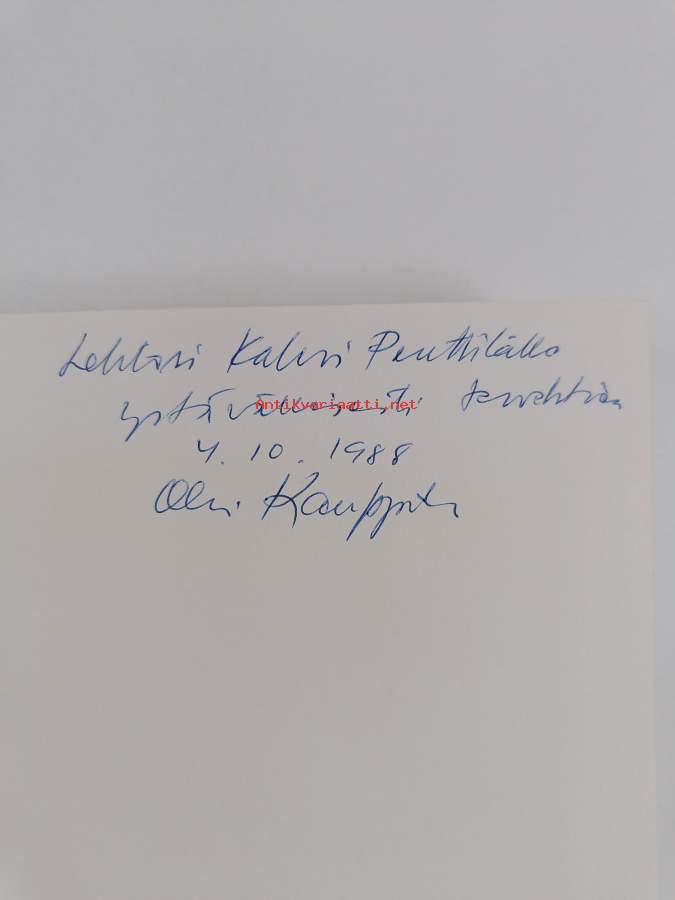 Lehtori Kalevi Penttilälle
ystävällisesti tervehtien
Antikvariaatti.net
4. 10. 1988
Olli Kauppila